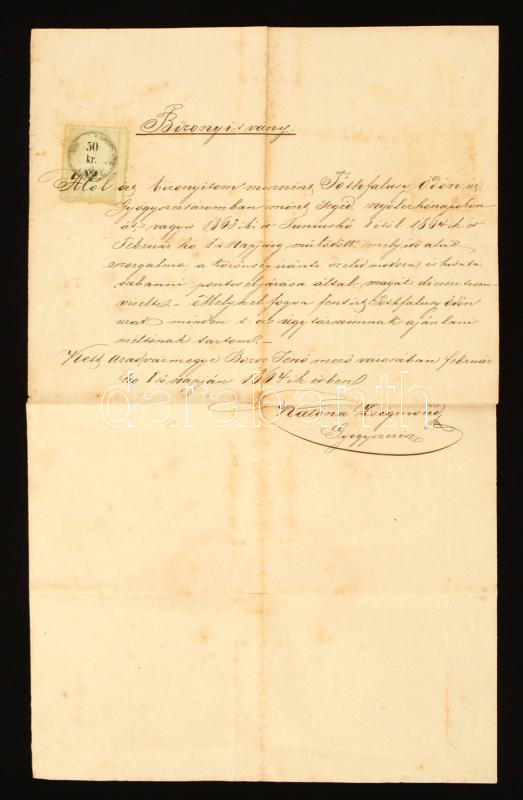 Bizonyitvány.
50
kr.
Alól irt bizonyitom miszerint Tóthfalusy Ödön ur
Gyógyszertáromban mint Seged nyolcz hónapokon
át, vagyis 1863-ik év Junius hó 1ől 1864-ik év
Február hó 1ső Napjáig működött, mely idő alatt
szorgalma a közönség iránti szelid modora és hivata
sábanni pontos eljárása által, magát dicséretesen
viselte. – Melynél fogva fentirt Tóthfalusy Ödön
urat minden t. cz. ügytársaimnak ajánlani
méltónak tartom. –
Kelt Aradvármegye Boros Jenő mező városában február
hó 1ső napján 1864-ik évben
Katona Zsigmond
Gyógyszerész
darabanth